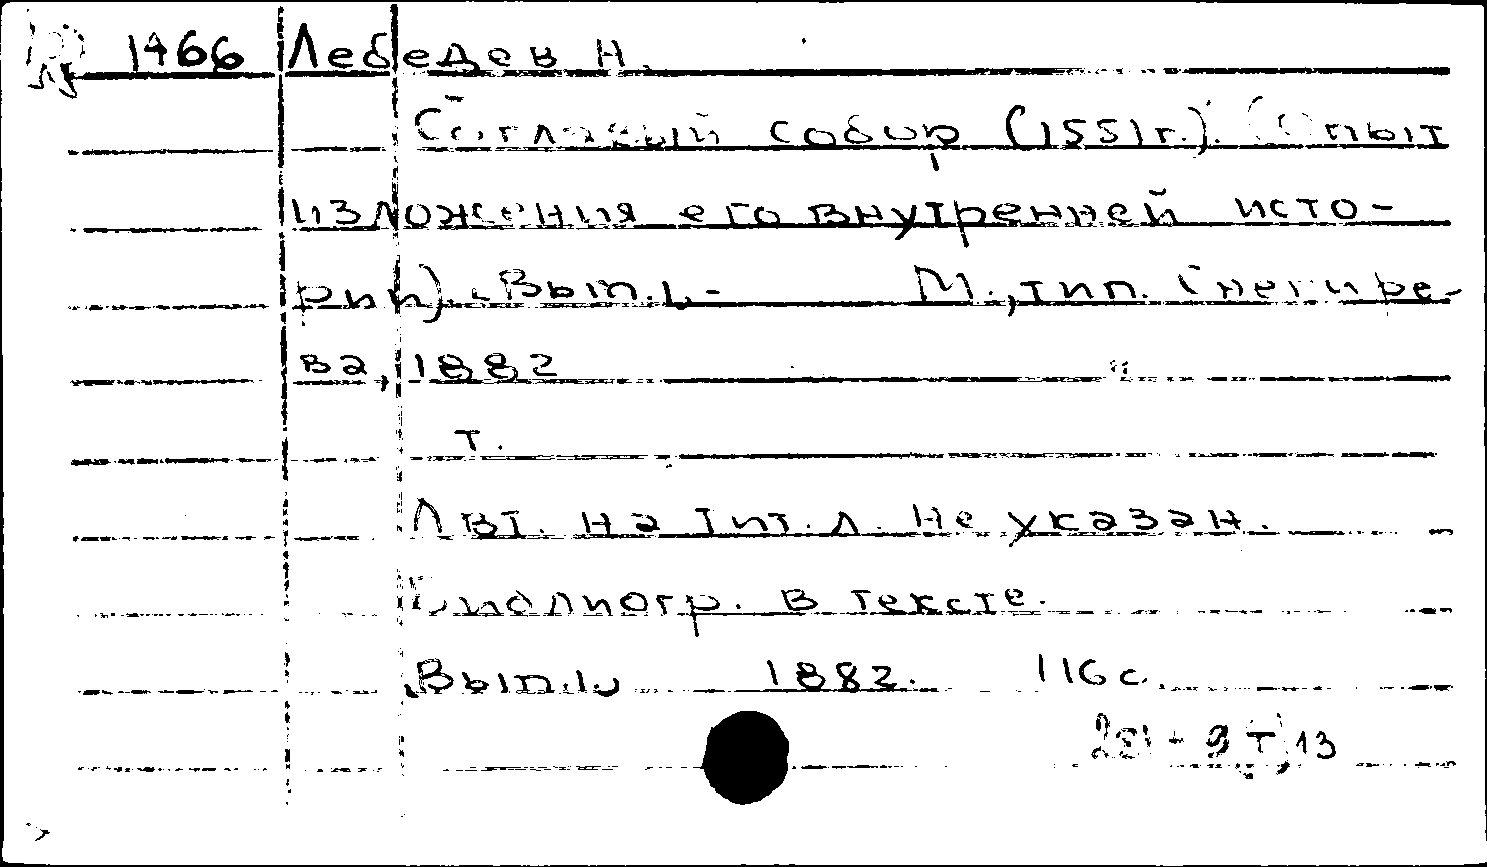 1466 Лебедев Н.
Стоглавый собор (1551г.). (Опыт
изложения его внутренней исто-
рии). Вып.1,- М., тип. Снегире-
ва, 1882
т.
Авт. на тит. л. не указан.
Библиогр. в тексте.
Вып.1, 1882. 116 с.
13